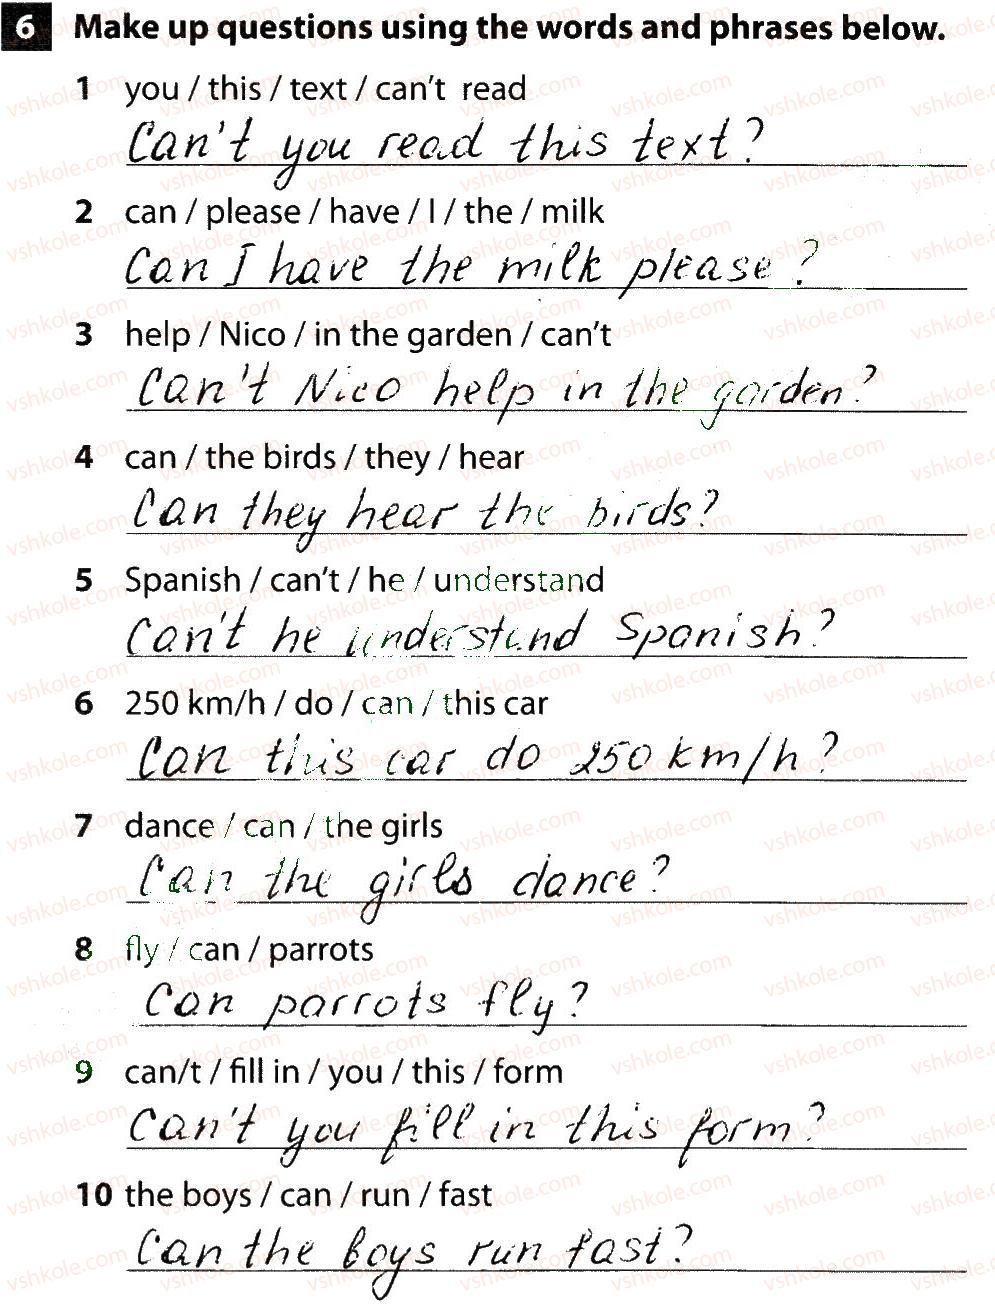 6 Make up questions using the words and phrases below.
1 you / this / text / can't read
Can't you read this text?
2 can / please / have / I / the / milk
Can I have the milk please?
3 help / Nico / in the garden / can't
Can't Nico help in the garden?
4 can / the birds / they / hear
Can they hear the birds?
5 Spanish / can't / he / understand
Can't he understand Spanish?
6 250 km/h / do / can / this car
Can this car do 250 km/h?
7 dance / can / the girls
Can the girls dance?
8 fly / can / parrots
Can parrots fly?
9 can/t / fill in / you / this / form
Can't you fill in this form?
10 the boys / can / run / fast
Can the boys run fast?
vshkole.com